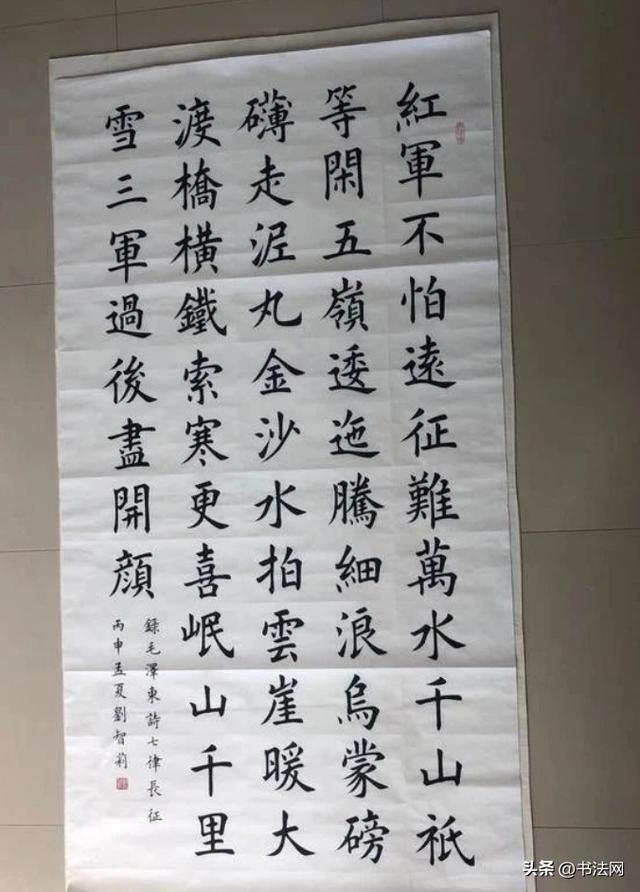 紅軍不怕遠征難萬水千山祇
等閑五嶺逶迤騰細浪烏蒙磅
礴走泥丸金沙水拍雲崖暖大
渡橋橫鐵索寒更喜岷山千里
雪三軍過後盡開顔
錄毛澤東詩七律長征
丙申孟夏劉智莉
头条 @书法网